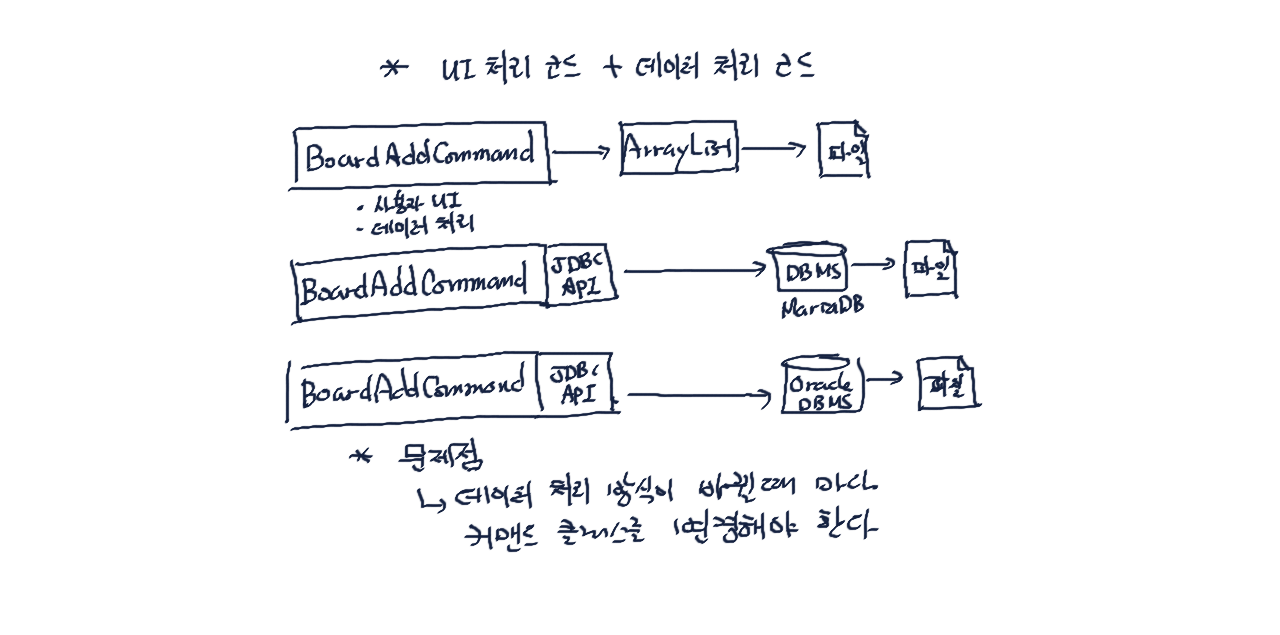 * UI 처리 코드 + 데이터 처리 코드
BoardAddCommand → ArrayList → 파일
· 사용자 UI
- 데이터 처리
BoardAddCommand JDBC API → DBMS → 파일
MariaDB
BoardAddCommand JDBC API → Oracle DBMS → 파일
* 문제점
↳ 데이터 처리 방식이 바뀔 때 마다.
커맨드 클래스를 변경해야 한다